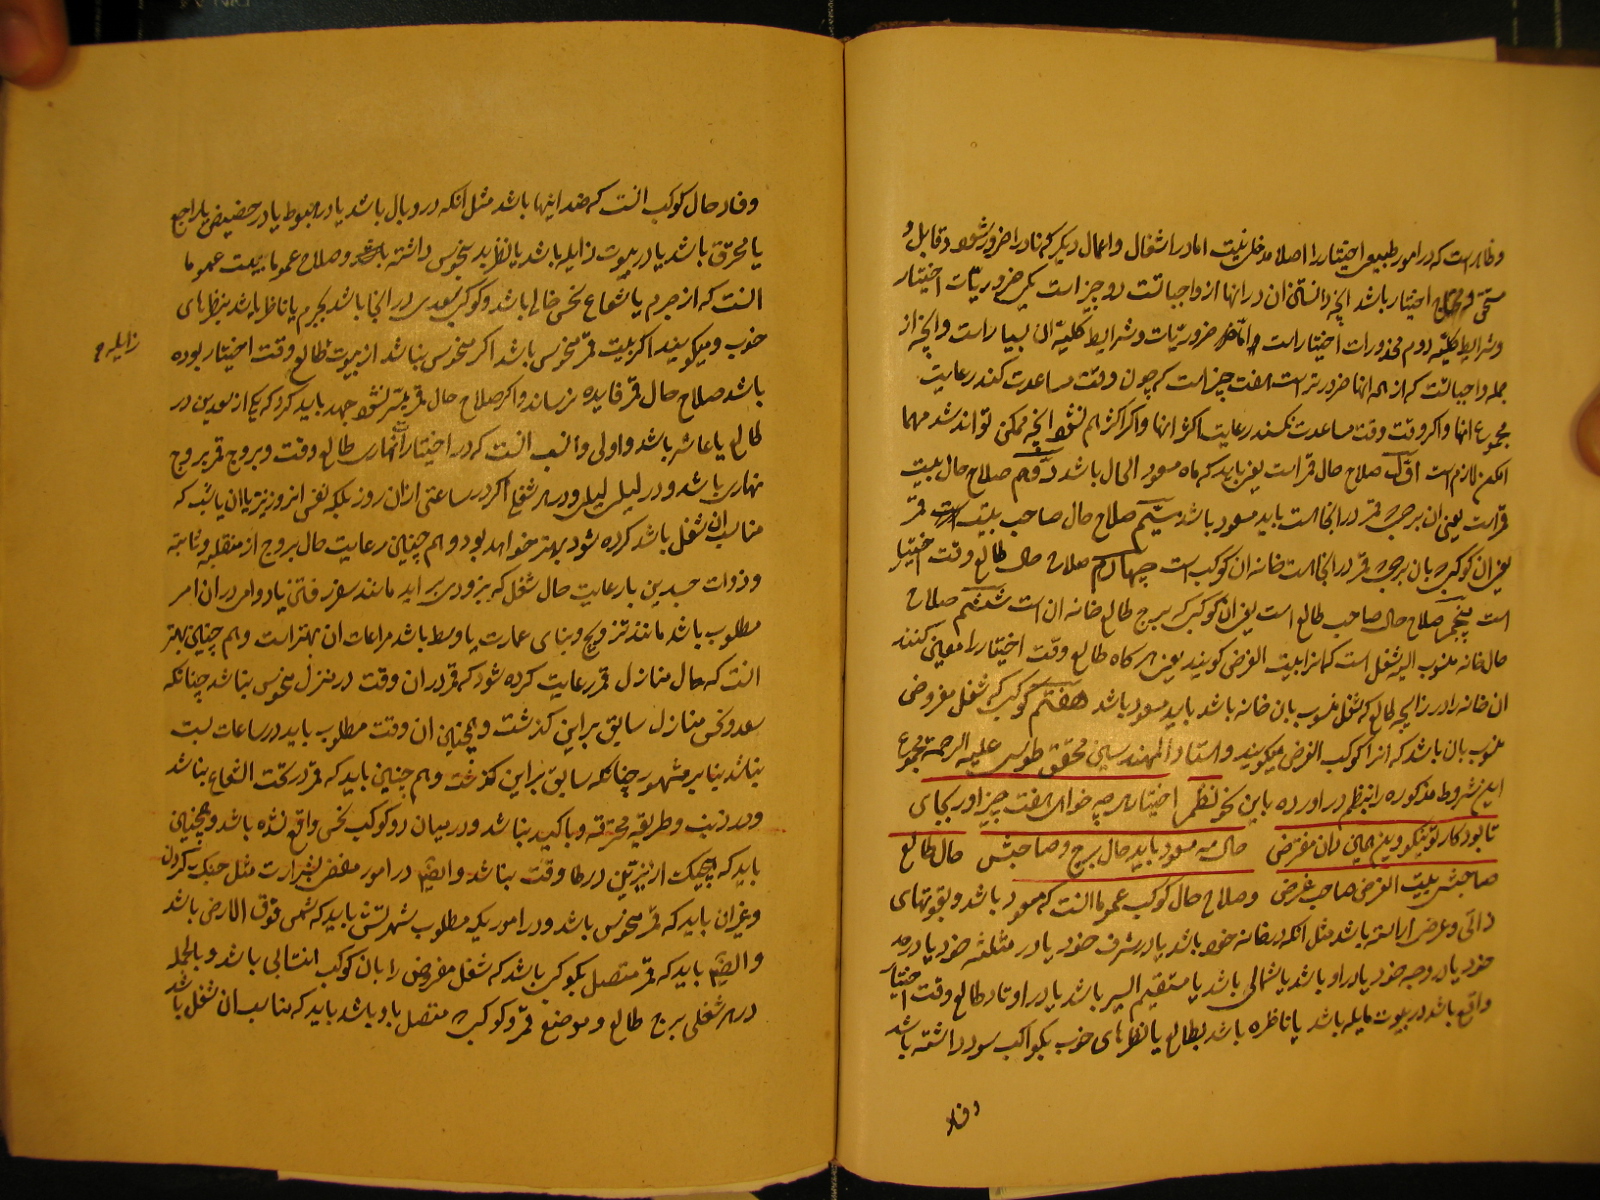 و ظاهر است که در امور طبیعی اختیار را اصلا مدخل نیست اما در اشغال و اعمال دیگر که نادرا ضرور شود و قابل و
اختیار باشد آنچه دانستن آن در آنها از واجباتست دو چیز است یکی ضروریات اختیار
و شرایط کلیه دوم محذورات اختیار است و اما ضروریات و شرایط کلیه آن بسیار است و آنچه از
جمله واجباتست که از همه آنها ضرورتر است هفت چیز است که چون وقت مساعدت کند رعایت
مجموع آنها و اگر وقت مساعدت نکند رعایت اکثر آنها و اگر اکثر هم نشود آنچه ممکن تواند شد مهما
امکن لازم است اول صلاح حال قمر است یعنی باید که ماه مسعود الحال باشد دوم صلاح حال بیت
قمر است یعنی آن برجی که قمر در آنجا است باید مسعود باشد سیم صلاح حال صاحب بیت قمر
یعنی آن کوکب که آن برجی که قمر در آنجا است خانه آن کوکب است چهارم صلاح حال طالع وقت اختیار
است پنجم صلاح حال صاحب طالع است یعنی آن کوکب که برج طالع خانه آن است ششم صلاح
حال خانه منسوب الیه شغل است که آنرا بیت الغرض گویند یعنی هر گاه طالع وقت اختیار را معین کنند
آن خانه را در زایجه طالع که شغل منسوب بآن خانه باشد باید مسعود باشد هفتم کوکب که شغل مفروض
منسوب بآن باشد که آنرا کوکب الغرض میگویند و استاد المهندسین محقق طوسی علیه الرحمه مجموع
این شروط مذکوره را بنظم در آورده باین نحو نظم اختیار هر چه خواهی هفت چیز آور بجای
تا بود کار تو نیکو و بنر همین دان مفترض حال مه مسعود باید حال برج و صاحبش حال طالع
صاحبش بیت الغرض صاحب غرض و صلاح حال کوکب عموما آنست که مسعود باشد و بقوتهای
ذاتی و عرضی آراسته باشد مثل آنکه در خانه خود باشد یا در شرف خود یا در مثلثه خود یا در حد
خود یا در وجه خود یا در او باشد یا شمالی باشد یا مستقیم السیر باشد یا در اوتاد طالع وقت اختیار
واقع باشد در بیوت مایله باشد یا ناظره باشد بطالع یا نظرهای خوب بکواکب سعود داشته باشد
و فساد
و فساد حال کوکب آنست که ضد اینها باشد مثل آنکه در وبال باشد یا در هبوط یا در حضیض یا راجع
یا محرق باشد یا در بیوت زایله باشد یا نظر بد بنحوس داشته باشد و صلاح عموما بیت عموما
آنست که از جرم یا شعاع نحس خالی باشد و کوکب سعدی در آنجا باشد بجرم یا ناظر باشد بنظرهای
خوب و میگویند اگر بیت قمر منحوس باشد اگر منحوس نباشد از بیوت طالع وقت اختیار بوده
زایله
باشد صلاح حال قمر فایده نرساند و اگر صلاح حال قمر میسر نشود جهد باید کرد که یکی از سعدین در
طالع یا عاشر باشد و اولی و انسب آنست که در اختیارات نهاری طالع وقت و برج قمر بروج
نهاری باشد و در لیلی لیلی و در هر شغل اگر در ساعتی از آن روز بلکه نفس آنروز نیز باان باشد که
مناسب آن شغل باشد کرده شود بهتر خواهد بود و هم چنین رعایت حال بروج از منقلبه و ثابته
و ذوات جسدین با رعایت حال شغل که بزودی برآید مانند سفر رفتن یا دوام در آن امر
مطلوب باشد مانند تزویج و بنای عمارت یا وسط باشد مراعات آن بهتر است و هم چنین بهتر
آنست که حال منازل قمر رعایت کرده شود که قمر در آن وقت در منزل منحوس نباشد چنانکه
سعد و نحس منازل سابق بر این گذشت و همچنین آن وقت مطلوب باید در ساعات بست
نباشد بنابر مشهور چنانکه سابق بر این گذشت و هم چنین باید که قمر در تحت الشعاع نباشد
و در ذنب و طریقه محترقه و با کید نباشد و در میان دو کوکب نحس واقع نشده باشد و همچنین
باید که هیچیک از نیرین در طا وقت نباشد و ایضا در امور مفضی بشرارت مثل جنگ کردن
و غیر آن باید که قمر منحوس باشد و در اموریکه مطلوب شهرتش باید که شمس فوق الارض باشد
و ایضا باید که قمر متصل بکوکبی باشد که شغل مفروض را بآن کوکب انتسابی باشد و بالجمله
در هر شغلی برج طالع و موضع قمر و کوکب که متصل باو باشد باید که مناسب آن شغل باشد